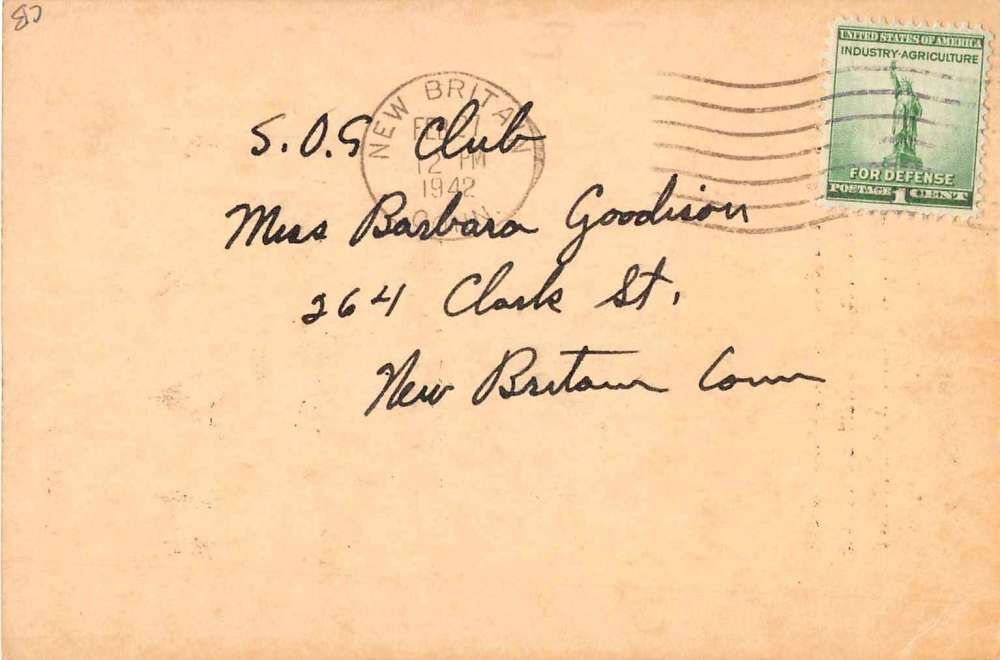 UNITED STATES OF AMERICA
INDUSTRY·AGRICULTURE
FOR DEFENSE
POSTAGE 1 CENT
NEW BRITAIN
FEB 27
12 PM
1942
CONN.
S.O.S Club
Miss Barbara Goodison
264 Clark St.
New Britain Conn